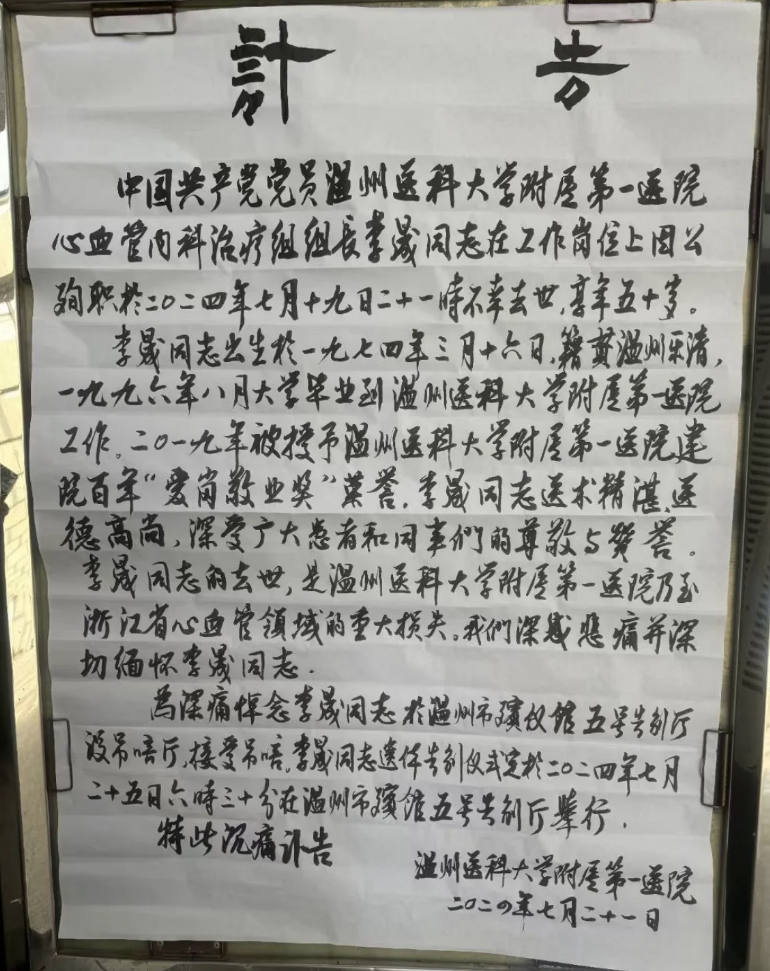 訃 告
中国共产党党员温州医科大学附属第一医院
心血管内科治疗组组长李晟同志在工作岗位上因公
殉职於二〇二四年七月十九日二十一時不幸去世,享年五十岁。
李晟同志出生於一九七四年三月十六日,籍贯温州乐清,
一九九六年八月大学毕业到温州医科大学附属第一医院
工作。二〇一九年被授予温州医科大学附属第一医院建
院百年“爱岗敬业奖”荣誉。李晟同志医术精湛,医
德高尚,深受广大患者和同事們的尊敬与赞誉。
李晟同志的去世,是温州医科大学附属第一医院乃至
浙江省心血管领域的重大损失。我們深感悲痛并深
切缅怀李晟同志.
為深痛悼念李晟同志於温州市殡仪馆五号告别厅
设吊唁厅,接受吊唁。李晟同志遗体告别仪式定於二〇二四年七月
二十五日六時三十分在温州市殡馆五号告别厅舉行.
特此沉痛讣告
温州医科大学附属第一医院
二〇二四年七月二十一日